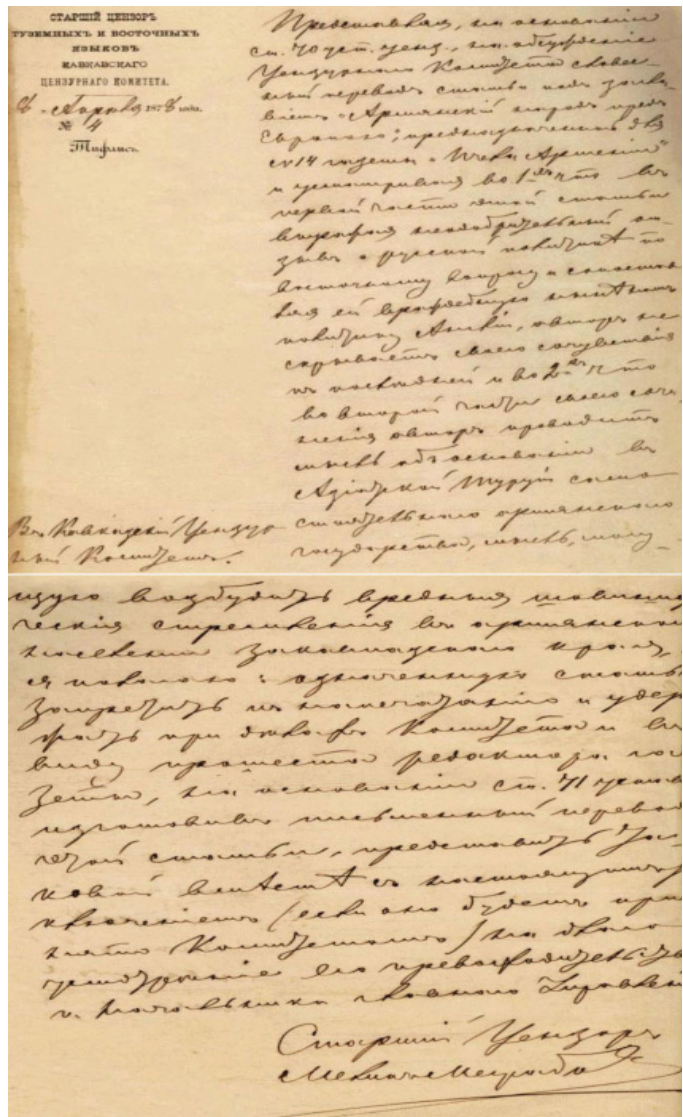 СТАРШІЙ ЦЕНЗОРЪ
ТУЗЕМНЫХЪ И ВОСТОЧНЫХЪ
ЯЗЫКОВЪ
КАВКАЗСКАГО
ЦЕНЗУРНАГО КОМИТЕТА.
8 - Апрѣля 1878 года.
№ 4
Тифлисъ.
Представляя, на основаніи
ст. 70 уст. ценз., на обсужденіе
Цензурнаго Комитета словес-
ный переводъ статьи подъ загла-
віемъ „Армянскій народъ предъ
Европою", предназначенной для
№ 14 газеты „Пчела Арменіи"
и усматривая во 1хъ что въ
первой части этой статьи
выражая неодобрительный от-
зывъ о русской политикѣ по
восточному вопросу и сопостав-
ляя ей враждебную намъ
политику Англіи, авторъ не
скрываетъ своего сочувствія
къ послѣдней и во 2хъ что
во второй части своего сочи-
ненія авторъ проводитъ
мысль объ основаніи въ
Азіатской Турціи само-
стоятельнаго армянскаго
государства, мысль, могу-
Въ Кавказскій Цензур-
ный Комитетъ.
щую возбудить вредныя
ческія стремленія въ армянскомъ
населеніи Закавказскаго края,
я полагаю: означенную статью
запретить къ напечатанію и удер-
жать при дѣлахъ Комитета и въ
виду протеста редактора га-
зеты, на основаніи ст. 71 устава
изготовивъ письменный перевод
этой статьи, представить
ковой съ настоящимъ
ключеніемъ (если оно будетъ при-
нято Комитетомъ) на
усмотрѣніе его превосходительства
г. Начальника Главнаго Управлен
Старшій Цензоръ